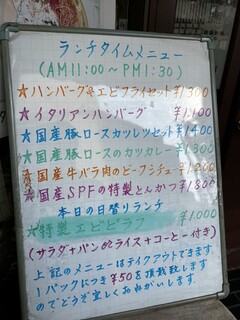 ランチタイムメニュー
(AM11:00 ~ PM1:30)
☆ハンバーグ&エビフライセット ¥1,300
☆イタリアンハンバーグ ¥1,100
☆国産豚ロースカツレツセット ¥1,400
☆国産豚ロースのカツカレー ¥1,300
☆国産牛バラ肉のビーフシチュー ¥1,200
☆国産SPFの特製とんかつ ¥1,800
本日の日替りランチ
☆特製エビピラフ ¥1,000
(サラダ+パンorライス+コーヒー付き)
上記のメニューはテイクアウトできます。
1パックにつき¥50を頂戴致します
のでどうぞ宜しくおねがいします。